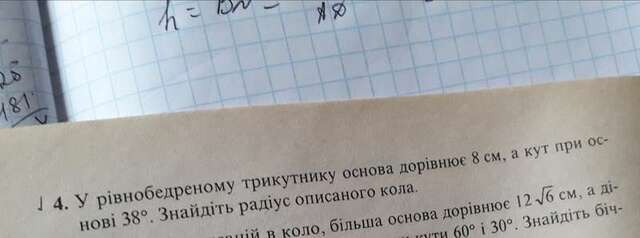 h =
25
181
4. У рівнобедреному трикутнику основа дорівнює 8 см, а кут при ос-
нові 38°. Знайдіть радіус описаного кола.
в коло, більша основа дорівнює 12√6 см, а ді-
кути 60° і 30°. Знайдіть біч-